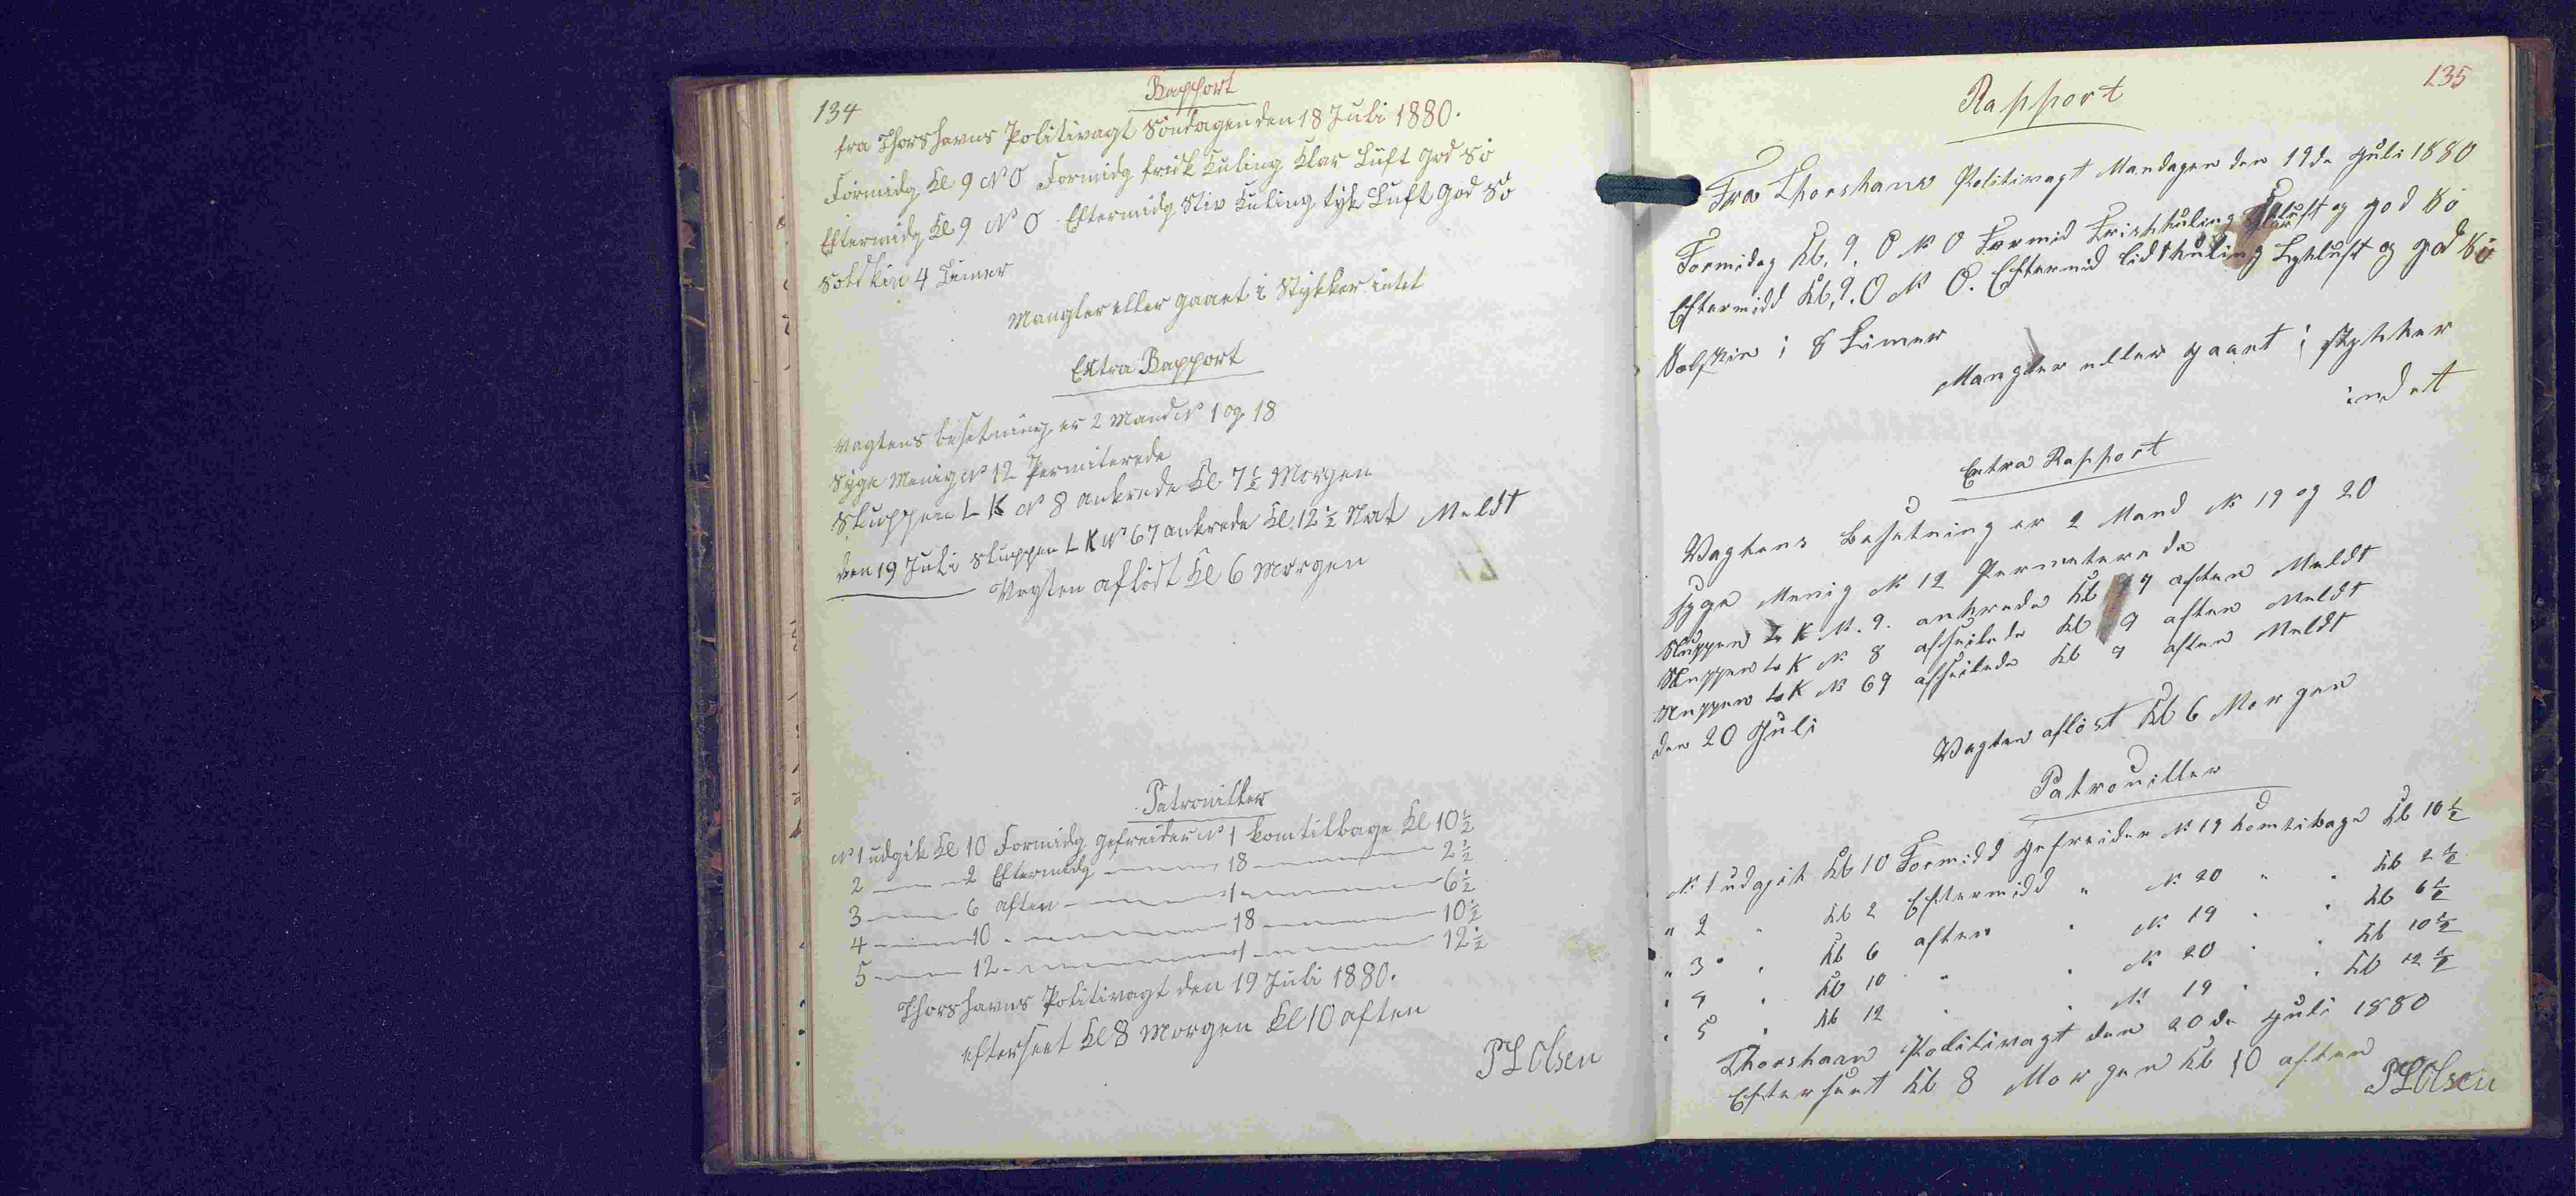 134
Rapport
fra Thorshavns Politivagt Søndagen den 18 Juli 1880.
Formidg Kl 9 N O Formidg frisk Kuling Klar Luft god Sø
Eftermidg Kl 9 N O. Eftermidg Stiv Kuling tyk Luft God Sø
Solskin 4 Timer
Mangler eller gaaet i Stykker intet
Extra Rapport
Vagtens besetning er 2 Mand N 1 og 18
Syge Menig N 12 Permiterede
Sluppen L K N 8 ankrede Kl 7 1/2 Morgen
den 19 Juli Sluppen L K N 67 ankrede Kl 12 1/2 Nat Meldt
Vagten afløst Kl 6 Morgen
Patrouiller
N 1 udgik Kl 10 Formidg gefreider N 1 kom tilbage Kl 10 1/2
2 — — 2 Eftermidg — 18 — 2 1/2
3 — 6 aften — 1 — 6 1/2
4 — 10 — 18 — 10 1/2
5 — 12 — 1 — 12 1/2
Thorshavns Politivagt den 19 Juli 1880.
efterseet Kl 8 Morgen Kl 10 aften
P L Olsen
135
Rapport
Fra Thorshans Politivagt Mandagen den 19de Juli 1880
Formidag Kl, 9. O N O Formid Frishkuling Klar luft og god Sø
Eftermidd Kl, 9. O N O. Eftermid lidt kuling Tykluft og god Sø
Solskin i 8 Timer
Mangler eller gaaet i stykker
indet
Extra Rapport
Vagtens Besetning er 2 Mand N 19 og 20
syge Menig N 12 Permeterede
Sluppen L K N. 9. ankrede Kl 7 aften Meldt
Sluppen L K N 8 afseilede Kl 9 aften Meldt
Sluppen L K N 69 afseilede Kl 9 aften Meldt
den 20 Juli
Vagten afløst Kl 6 Morgen
Patrouiller
N 1 udgik Kl 10 Formidd gefreider N 19 komtibage Kl 10 1/2
" 2 " Kl 2 Eftermidd " N 20 " " Kl 2 1/2
" 3 " Kl 6 aften " N 19 " " Kl 6 1/2
" 4 " Kl 10 " " N 20 " " Kl 10 1/2
" 5 " Kl 12 " " N 19 " " Kl 12 1/2
Thorshavn Politivagt den 20de Juli 1880
Efterseet Kl 8 Morgen Kl 10 aften
P L Olsen